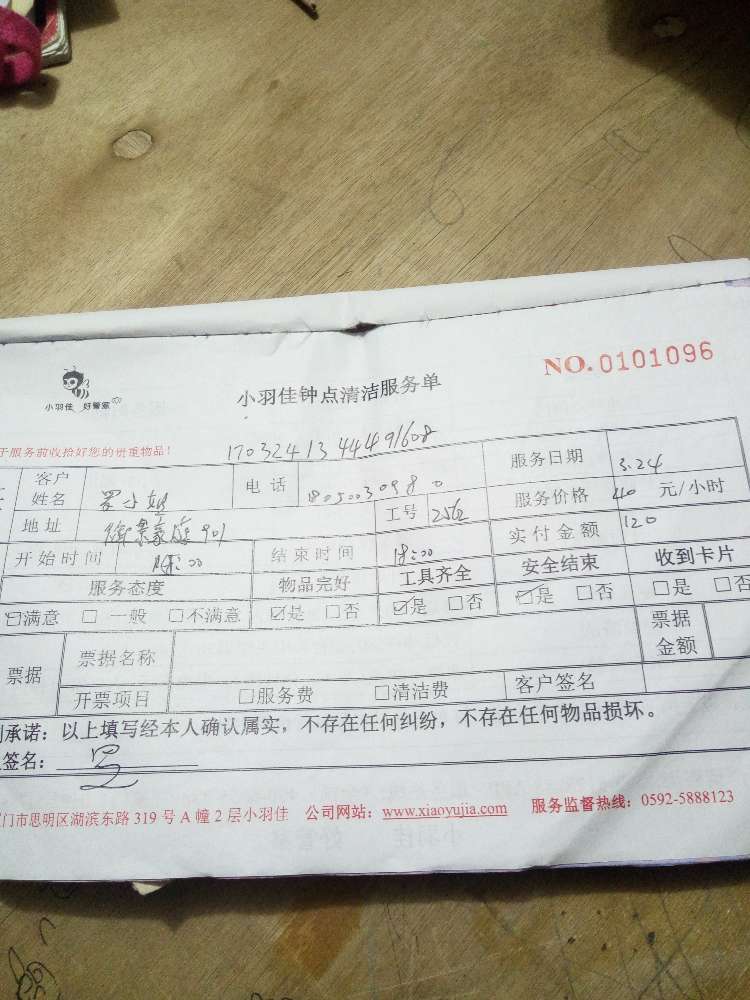 NO.0101096
小羽佳 好管家
小羽佳钟点清洁服务单
于服务前收拾好您的贵重物品!
1703241344491608
客户姓名 罗小姐 电话 服务日期 3.24
地址 901 工号 2562 服务价格 40 元/小时
开始时间 结束时间 18:00 实付金额 120
服务态度 物品完好 工具齐全 安全结束 收到卡片
☑满意 □一般 □不满意 ☑是 □否 ☑是 □否 ☑是 □否 □是 □否
票据 票据名称 票据金额
开票项目 □服务费 □清洁费 客户签名
承诺：以上填写经本人确认属实，不存在任何纠纷，不存在任何物品损坏。
签名：罗
门市思明区湖滨东路 319 号 A 幢 2 层小羽佳 公司网站：www.xiaoyujia.com 服务监督热线：0592-5888123